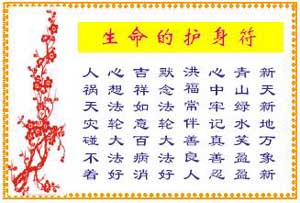 生命的护身符
新天新地万象新
青山绿水笑盈盈
心中牢记真善忍
洪福常伴善良人
默念法轮大法好
吉祥如意百病消
心想法轮大法好
人祸天灾碰不着